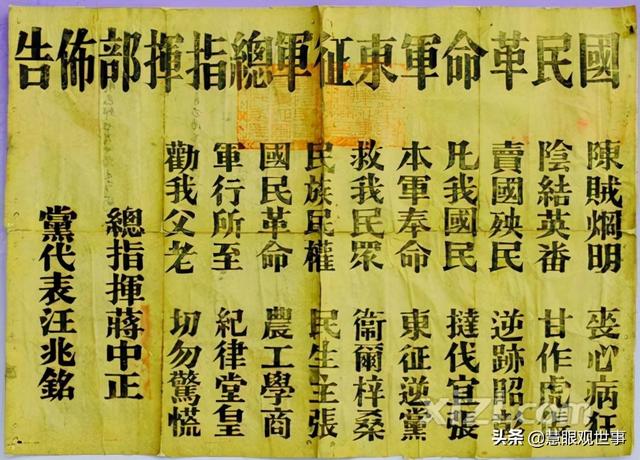 國民革命軍東征軍總指揮部佈告
陳賊烱明 喪心病狂
陰結英番 甘作虎倀
賣國殃民 逆跡昭彰
凡我國民 撻伐宜張
本軍奉命 東征逆黨
救我民眾 衞爾梓桑
民族民權 民生主張
國民革命 農工學商
軍行所至 紀律堂皇
勸我父老 切勿驚慌
總指揮蔣中正
黨代表汪兆銘
头条 @慧眼观世事